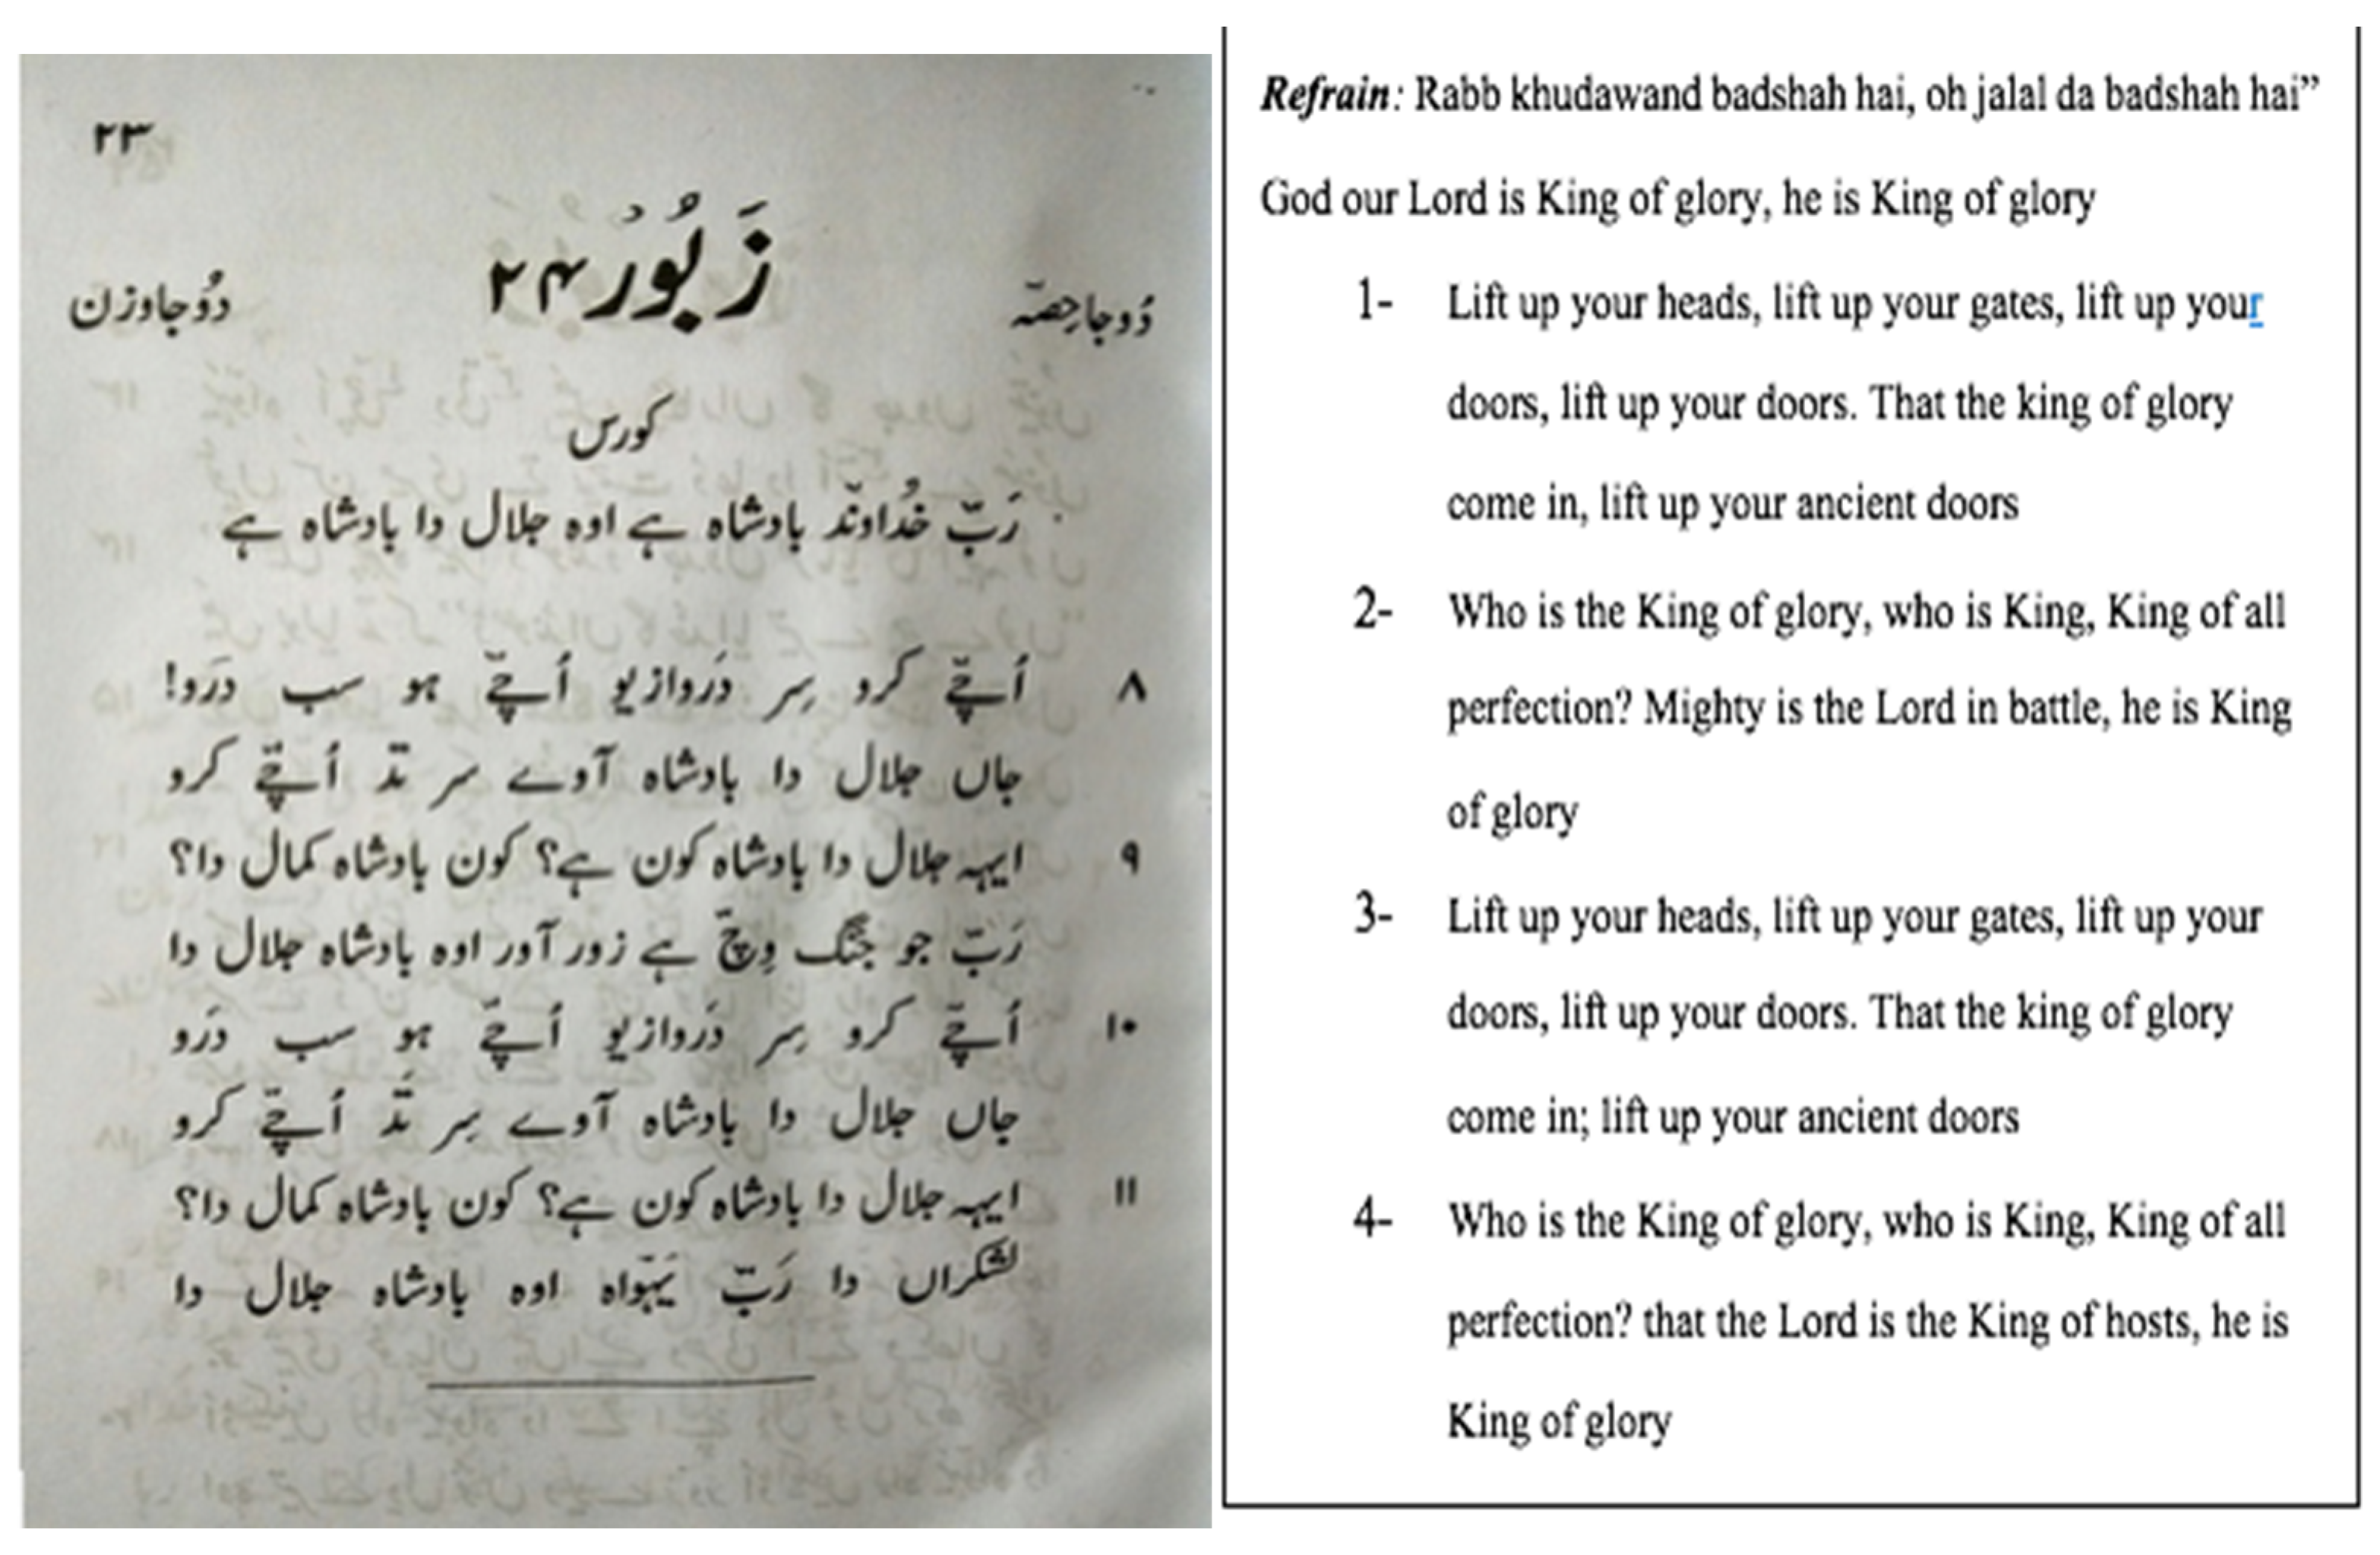 ۲۳
زَبُورُ ۲۴
دُوجا حِصّہ
دُوجا وزن
کورس
رَبّ خُداونّد بادشاہ ہے اوہ جلال دا بادشاہ ہے
۸ اُچّے کرو سِر دَروازیو اُچّے ہو سب دَرو!
جاں جلال دا بادشاہ آوے سر تدّ اُچّے کرو
۹ ایہہ جلال دا بادشاہ کون ہے؟ کون بادشاہ کمال دا؟
رَبّ جو جنگ وِچّ ہے زور آور اوہ بادشاہ جلال دا
۱۰ اُچّے کرو سِر دَروازیو اُچّے ہو سب دَرو
جاں جلال دا بادشاہ آوے سِر تَدّ اُچّے کرو
۱۱ ایہہ جلال دا بادشاہ کون ہے؟ کون بادشاہ کمال دا؟
لشکراں دا رَبّ یَہوّاہ اوہ بادشاہ جلال دا
Refrain: Rabb khudawand badshah hai, oh jalal da badshah hai”
God our Lord is King of glory, he is King of glory
1- Lift up your heads, lift up your gates, lift up your
doors, lift up your doors. That the king of glory
come in, lift up your ancient doors
2- Who is the King of glory, who is King, King of all
perfection? Mighty is the Lord in battle, he is King
of glory
3- Lift up your heads, lift up your gates, lift up your
doors, lift up your doors. That the king of glory
come in; lift up your ancient doors
4- Who is the King of glory, who is King, King of all
perfection? that the Lord is the King of hosts, he is
King of glory